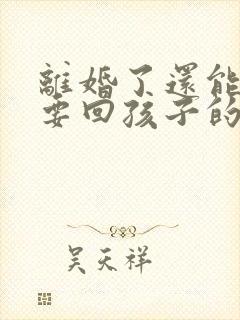 離婚了還能
要回孩子的
吴天祥